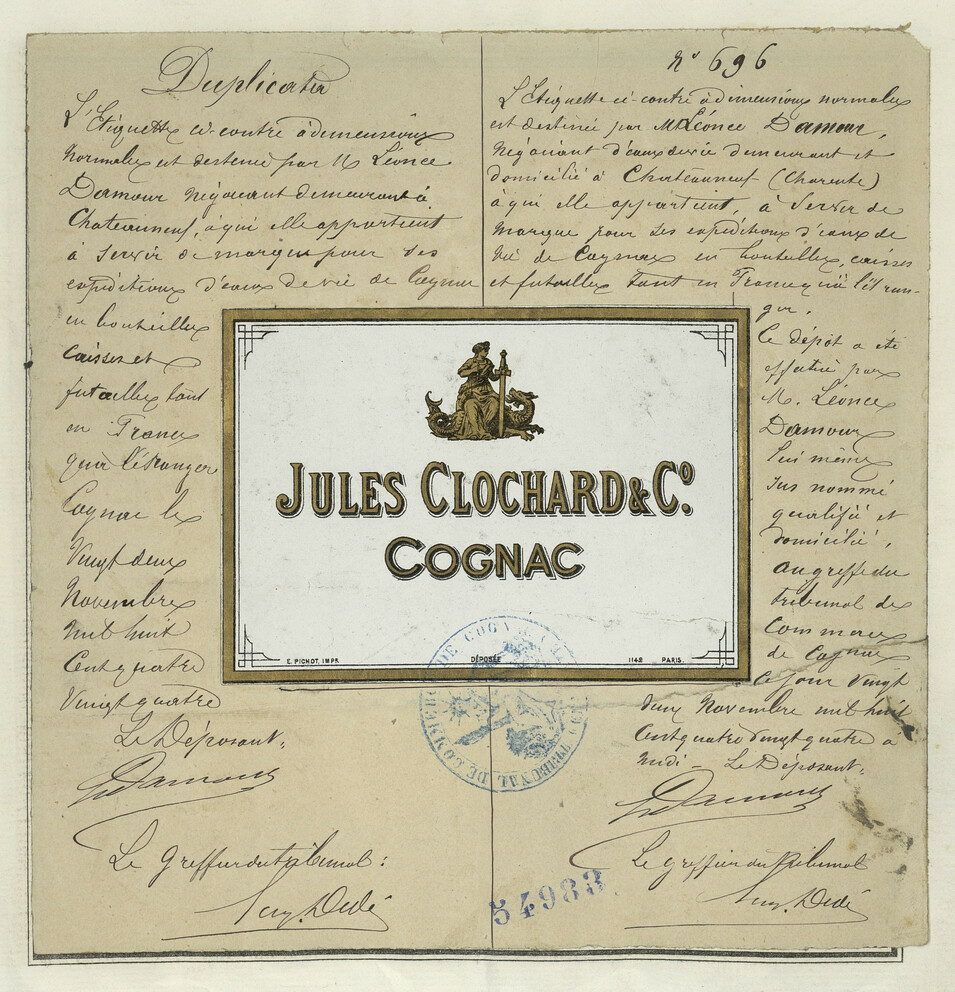 Duplicata
L'Etiquette ci-contre à dimensions
normales est destinée par M Léonce
Damour négociant demeurant à
Chateauneuf, à qui elle appartient
à servir de marque pour ses
expéditions d'eaux de vie de Cognac
en bouteilles
caisses et
futailles tant
en France
qu'à l'étranger
Cognac le
Vingt deux
Novembre
mil huit
Cent quatre
Vingt quatre
Le Déposant,
Damour
Le Greffier du tribunal :
Dédé
N° 696
L'Etiquette ci-contre à dimensions normales
est destinée par M. Léonce Damour,
Négociant d'eaux de vie demeurant et
domicilié à Chateauneuf (Charente)
à qui elle appartient, à servir de
marque pour ses expéditions d'eaux de
vie de Cognac en bouteilles, caisses
et futailles tant en France qu'à l'étran-
ger.
Ce dépôt a été
effectué par
M. Léonce
Damour
lui même
sus nommé
qualifié et
domicilié,
au greffe du
tribunal de
Commerce
de Cognac
ce jour vingt
deux Novembre mil huit
Cent quatre vingt quatre à
midi - Le Déposant,
Damour
Le greffier du tribunal
Dédé
JULES CLOCHARD & Cº.
COGNAC
E. PICHOT, IMPR.
DÉPOSÉE
1142 PARIS.
TRIBUNAL DE COMMERCE DE COGNAC
54983